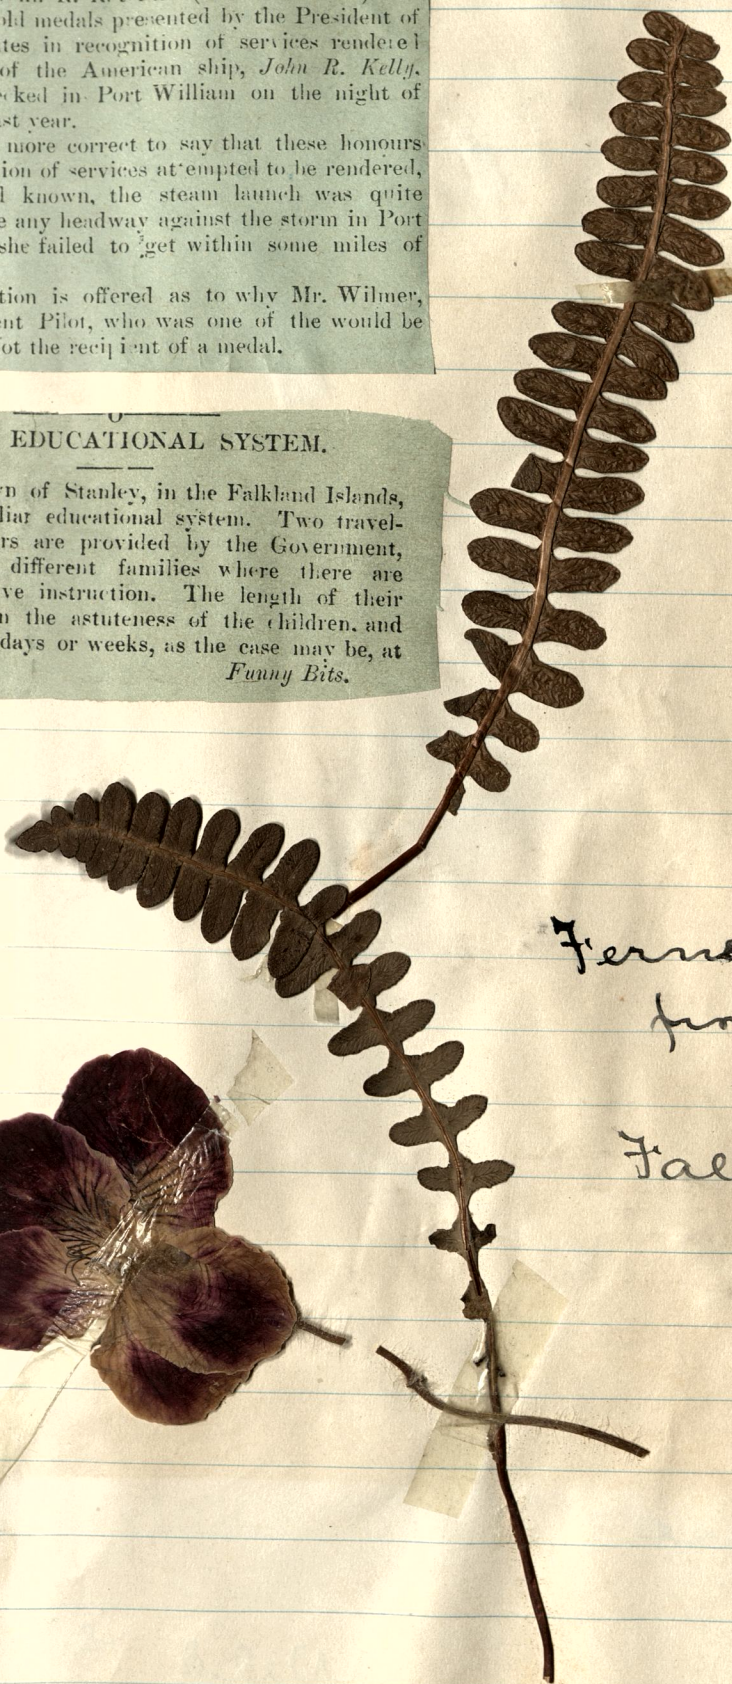 old medals presented by the President of
tes in recognition of services rendered
of the American ship, John R. Kelly,
cked in Port William on the night of
st year.
more correct to say that these honours
ion of services attempted to be rendered,
l known, the steam launch was quite
e any headway against the storm in Port
she failed to get within some miles of
tion is offered as to why Mr. Wilmer,
nt Pilot, who was one of the would be
ot the recipient of a medal.
EDUCATIONAL SYSTEM.
n of Stanley, in the Falkland Islands,
liar educational system. Two travel-
rs are provided by the Government,
different families where there are
ve instruction. The length of their
n the astuteness of the children, and
days or weeks, as the case may be, at
Funny Bits.
Ferns
fro
Fal